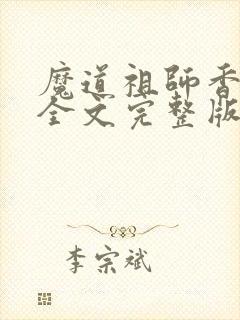 魔道祖師香
全文完整版
李宗斌